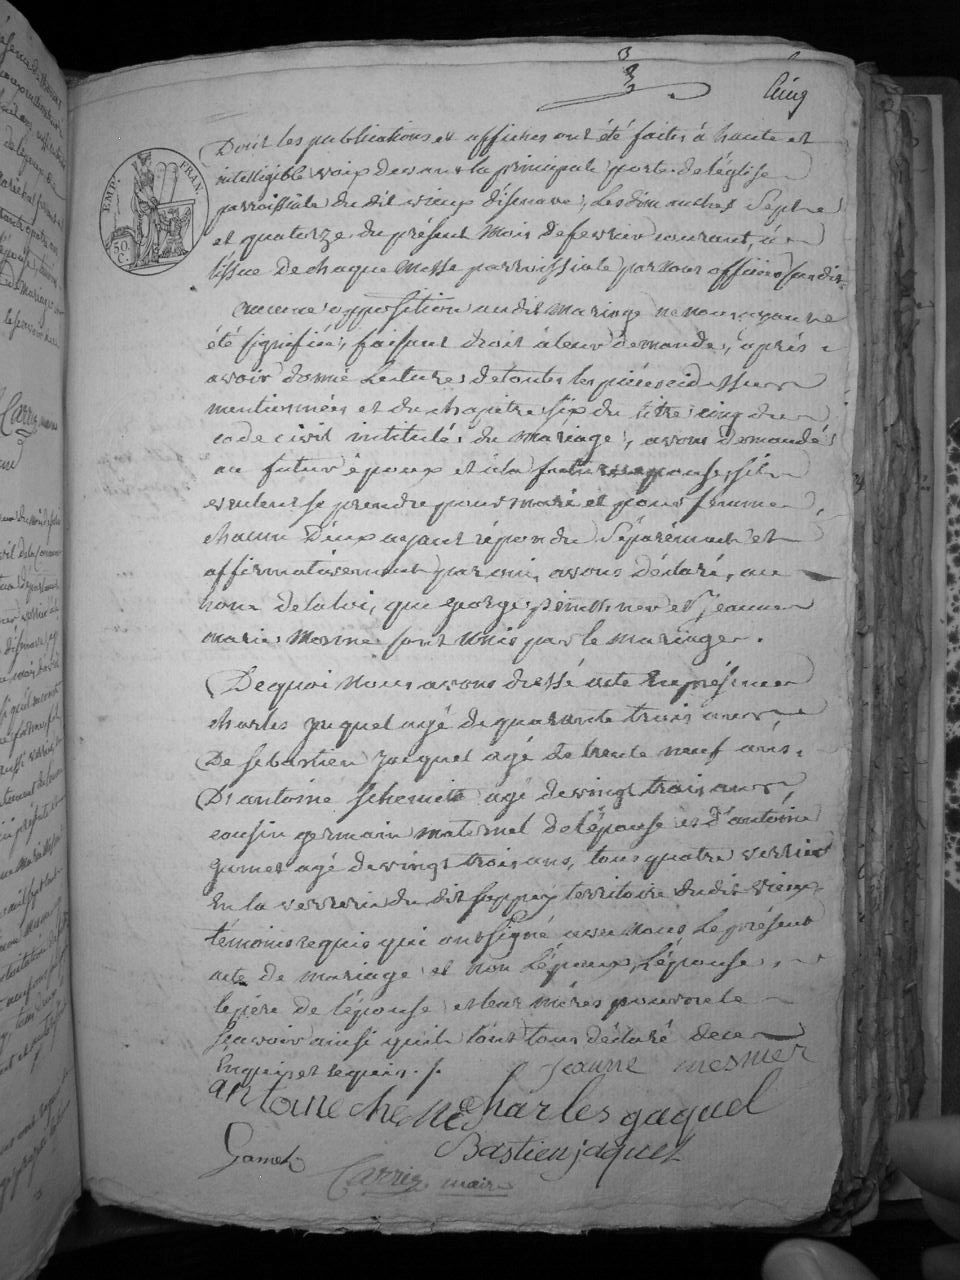 3
Cinq
EMP. FRAN.
50. C.
Dont les publications et affiches ont été faites à haute et
intelligible voix devant la principale porte de l'église
parroissiale du dit vieux d'isenave, les dimanches Sept
et quatorze du présent mois de fevrier courant, à
lissue De chaque Messe parroissiale par nous officier susdit.
aucune opposition audit mariage ne nous ayant
été signifiée, faisant droit à leur demande, après
avoir donné Lecture de toutes les pièces cidessus
mentionnées et du chapitre six du titre cinq du
code civil intitulé du Mariage, avons demandé
au futur époux et à la future epouse, s'ils
veulent se prendre pour mari et pour femme,
chacun D'eux ayant répondu Séparément et
affirmativement par oui, avons déclaré, au
nom de la loi, que george et Jeanne
marie sont unis par le mariage.
De quoi Nous avons dressé acte En présence
charles Jaquel agé de quarante trois ans
De sebastien Jacquel agé de trente neuf ans.
D'antoine agé de vingt trois ans,
cousin germain maternel de l'épouse et d'antoine
gamet agé de vingt trois ans, tous quatre verriers
En la verrerie du dit territoire dudit vieux
témoins requis qui ont signé avec Nous Le présent
acte de mariage et non L'époux, L'épouse,
le père de l'épouse et leur mères pour ne le
sçavoir ainsi qu'ils l'ont tous déclaré De ce
Enquis et requis. /.
Jeanne mesmer
antoine charles gaquel
Gamet Bastien jaquel
Carrez maire